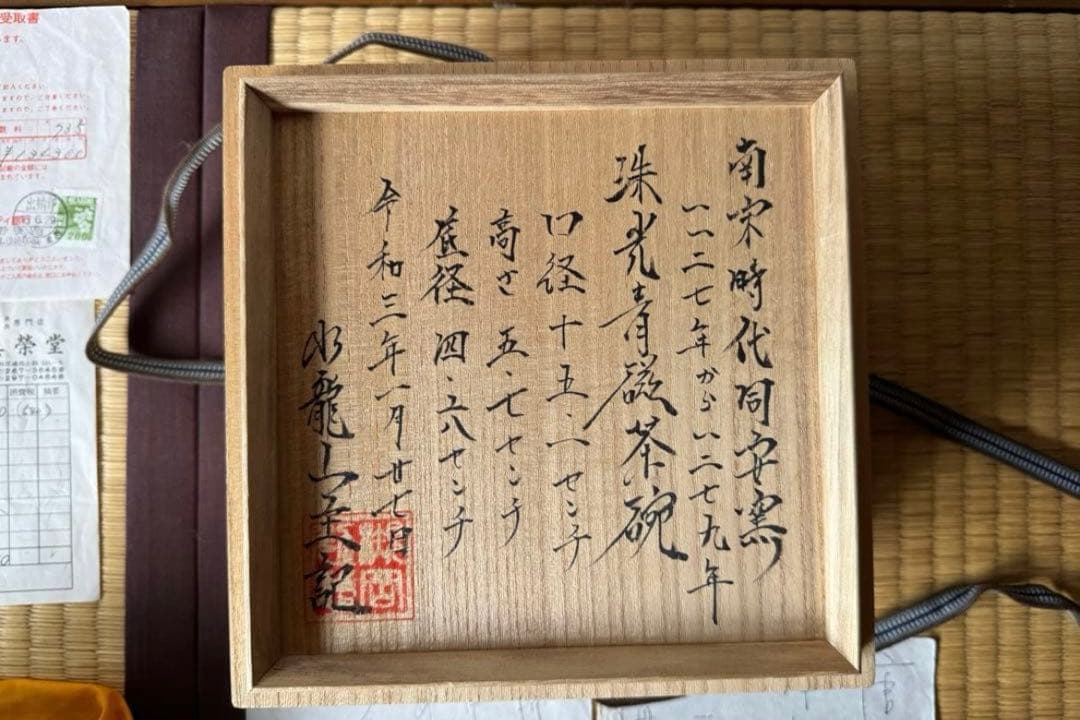 南宋時代同安窯
一一二七年から一二七九年
珠光青磁茶碗
口径十五・一センチ
高さ五・七センチ
底径四・六八センチ
令和三年一月廿七日
水龍山主人記
受取書
ます。
専門店
栄堂
消費税 摘要